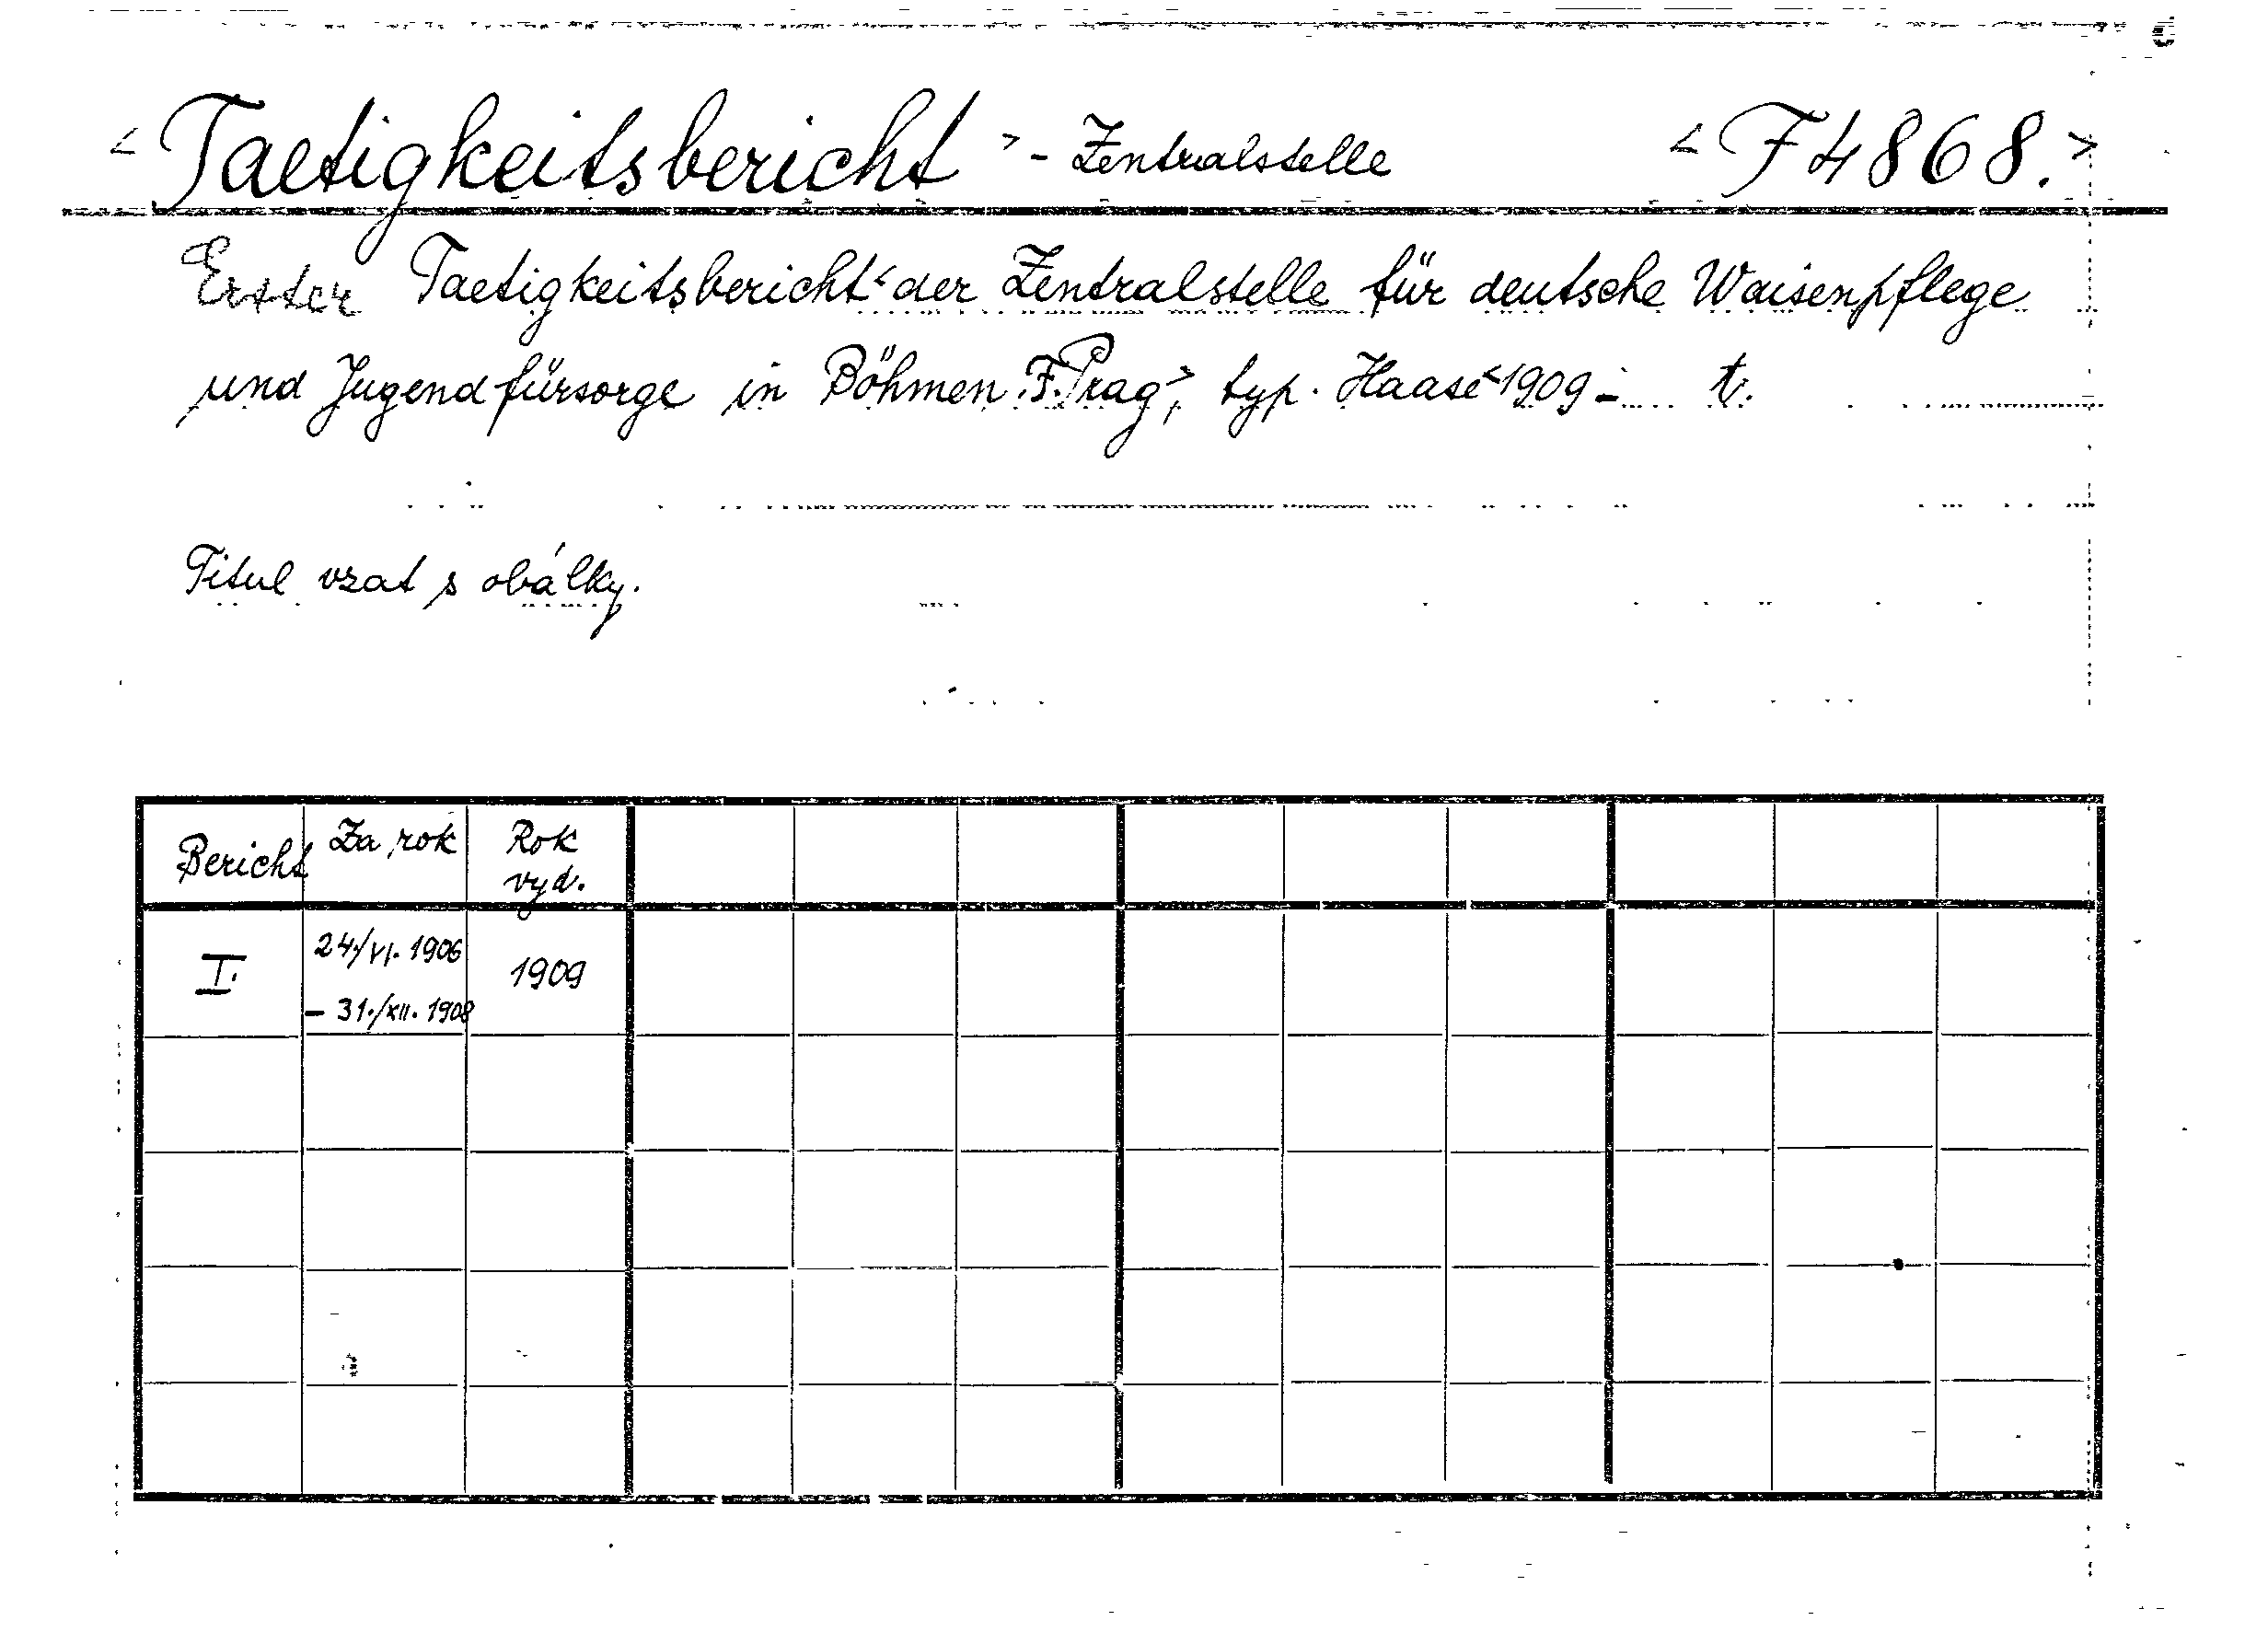 < Taetigkeitsbericht > - Zentralstelle < F 4868. >
Erster Taetigkeitsbericht < der Zentralstelle für deutsche Waisenpflege
und Jugendfürsorge in Böhmen. F. Prag >, typ. Haase < 1909 - tr.
Titul vzat s obálky.
Bericht Za rok Rok vyd.
I. 24./VI. 1906 - 31./XII. 1908 1909